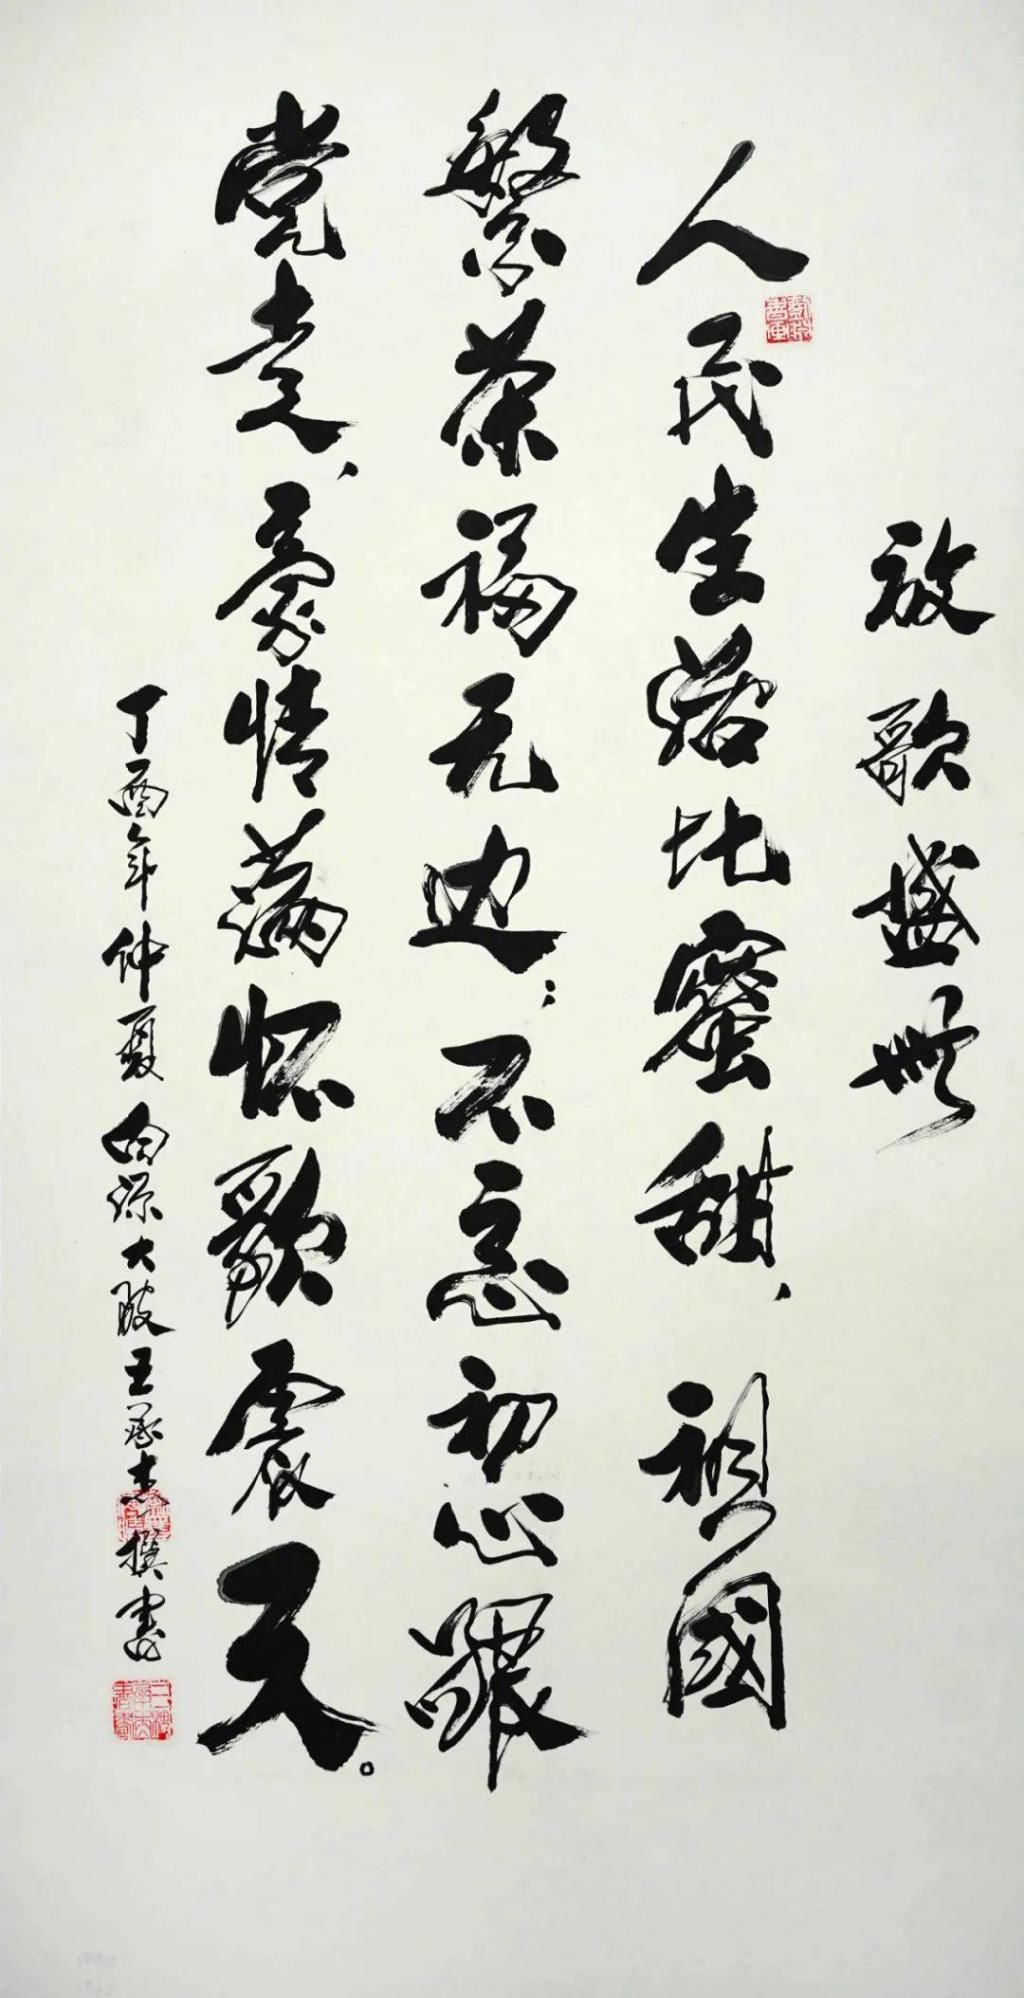 放歌盛世
人民生活比蜜甜，祖國
繁荣福无边；不忘初心跟
党走，豪情满怀歌震天。
丁酉年仲夏白源大陂王承志撰書